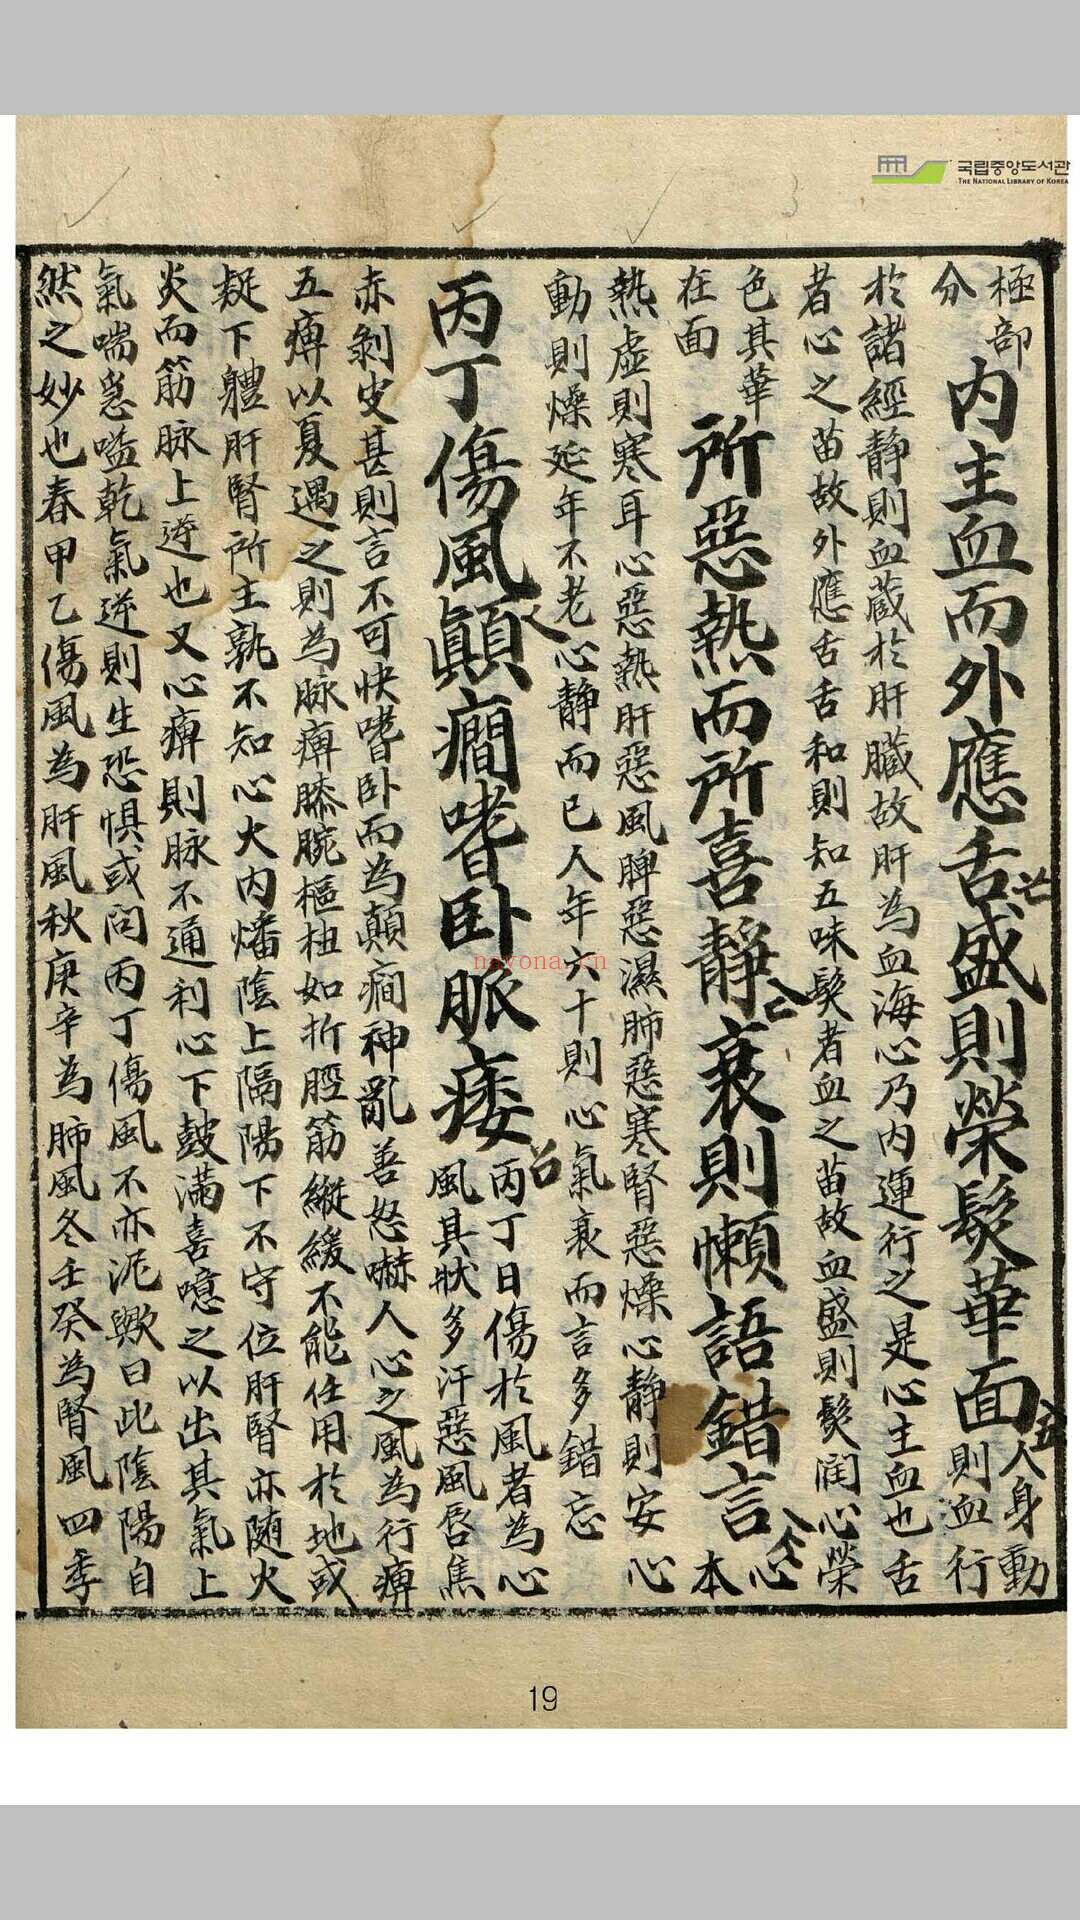 국립중앙도서관
THE NATIONAL LIBRARY OF KOREA
極部
分
內主血而外應舌盛則榮髮華面
人身動
則血行
於諸經靜則血藏於肝臟故肝為血海心乃內運行之是心主血也舌
者心之苗故外應舌舌和則知五味髮者血之苗故血盛則髮潤心榮
色其華
在面
所惡熱而所喜靜衰則懶語錯言
心
本
熱虛則寒耳心惡熱肝惡風脾惡濕肺惡寒腎惡燥心靜則安心
動則燥延年不老心靜而已人年六十則心氣衰而言多錯忘
丙丁傷風顛癎嗜臥脈痿
丙丁日傷於風者為心
風其狀多汗惡風唇焦
赤剝皮甚則言不可快嗜臥而為顛癎神亂善怒嚇人心之風為行痺
五痺以夏遇之則為脉痺膝腕樞柤如折脛筋縱緩不能任用於地或
疑下軆肝腎所主孰不知心火內燔陰上隔陽下不守位肝腎亦隨火
炎而筋脉上逆也又心痺則脉不通利心下皷滿喜噫之以出其氣上
氣喘急嗌乾氣逆則生恐惧或問丙丁傷風不亦泥歟曰此陰陽自
然之妙也春甲乙傷風為肝風秋庚辛為肺風冬壬癸為腎風四季
nayona.cn
19